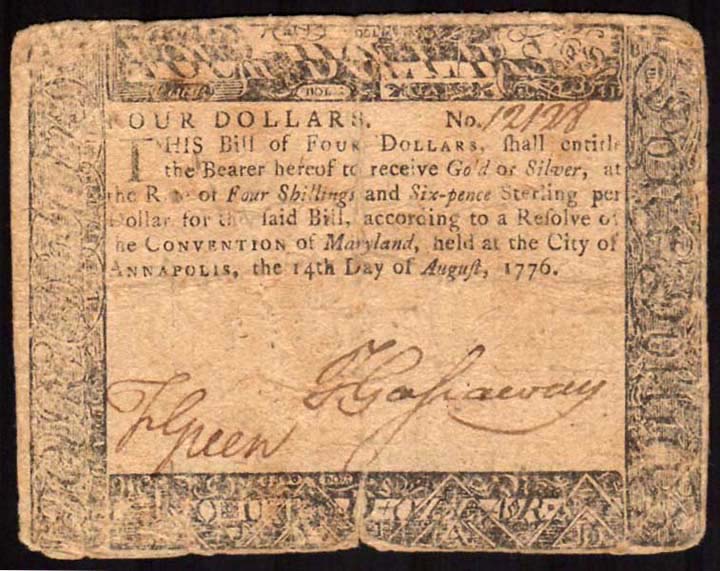 FOUR DOLLARS. No. 12128
THIS Bill of FOUR DOLLARS, ſhall entitle
the Bearer hereof to receive Gold or Silver, at
the Rate of Four Shillings and Six-pence Sterling per
Dollar for the ſaid Bill, according to a Reſolve of
the CONVENTION of Maryland, held at the City of
ANNAPOLIS, the 14th Day of Auguſt, 1776.
J Gaſsaway
F Green